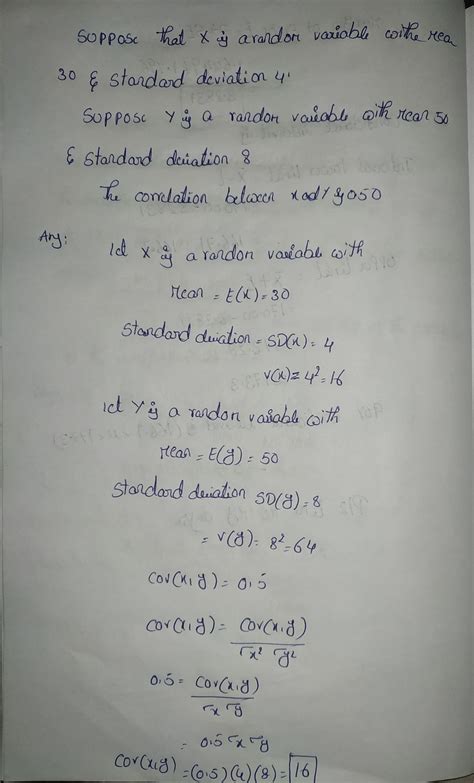 Suppose that X is a random variable withe Mea
30 & standard deviation 4.
Suppose Y is a random variable with Mean 50
& standard deviation 8
The correlation between x ad Y is 0.50
Ans:
let X is a random variable with
Mean = E(x) = 30
Standard deviation = SD(x) = 4
V(x) = 4² = 16
let Y is a random variable with
Mean = E(y) = 50
Standard deviation SD(y) = 8
= V(y) = 8² = 64
Cov(x,y) = 0.5
Cov(x,y) = Cov(x,y) / σx² σy²
0.5 = Cov(x,y) / σx σy
= 0.5 σx σy
Cov(x,y) = (0.5)(4)(8) = 16